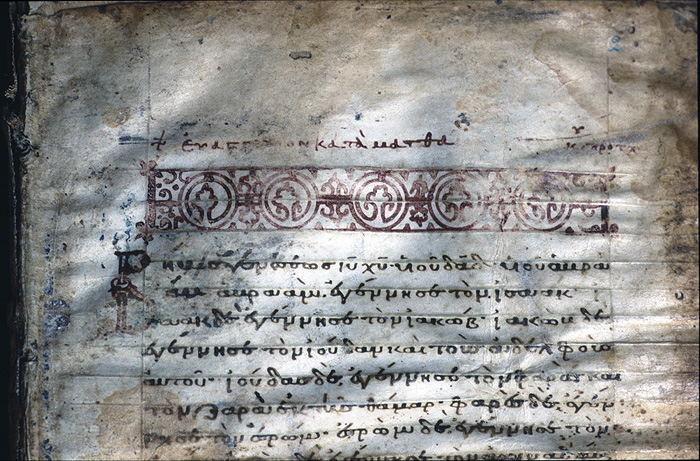 + ΕΥΑΓΓΕΛΙΟΝ ΚΑΤΑ ΜΑΤΘΑ
γενέσεως ιυ χυ υιου δαδ υιου αβρα
αμ αβρααμ, ἐγέννησε τὸν ισαακ
ισαακ δὲ, ἐγέννησε τὸν ιακώβ ιακωβ δὲ
ἐγέννησε τὸν ιούδαν και τουσ αδελφουσ
αυτου· ιούδασ δὲ, ἐγέννησε τὸν φαρεσ και
τὸν ζαρα ἐκ τῆσ θάμαρ· φαρεσ δὲ, ἐγέν
νησε τὸν ἐσρώμ· ἐσρωμ δὲ, ἐγέννησε τὸν